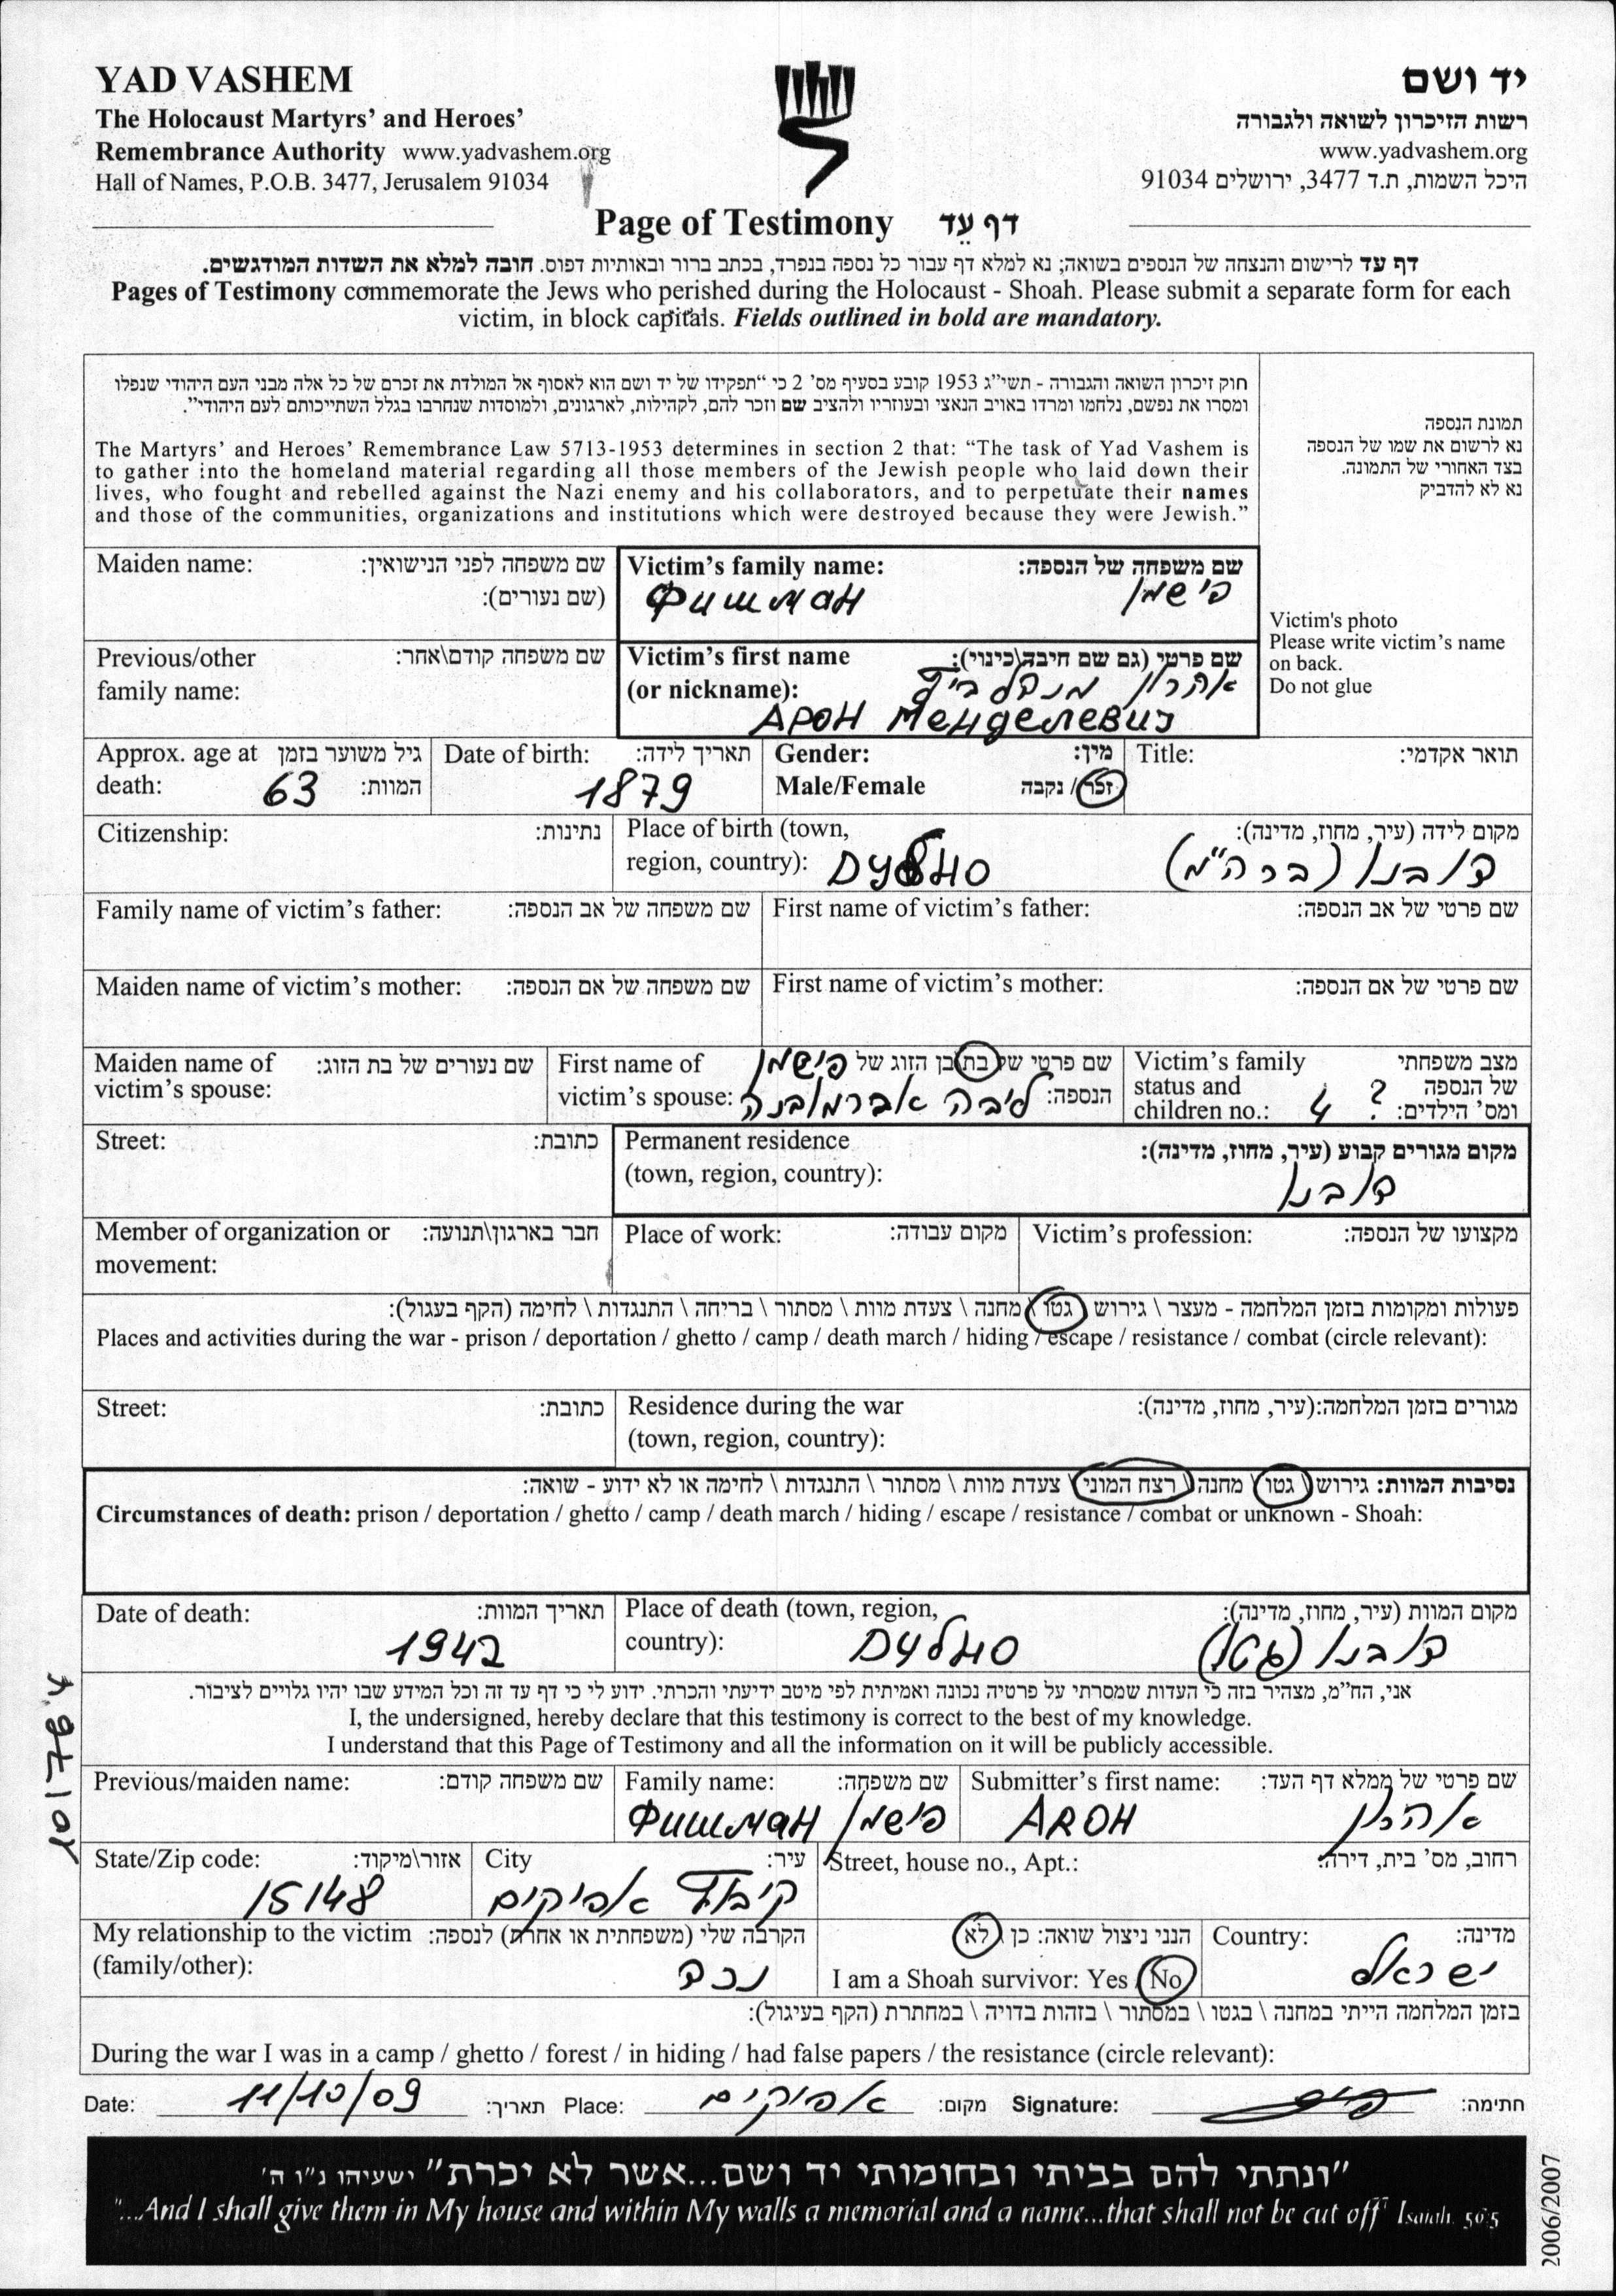 YAD VASHEM
The Holocaust Martyrs' and Heroes'
Remembrance Authority www.yadvashem.org
Hall of Names, P.O.B. 3477, Jerusalem 91034
יד ושם
רשות הזיכרון לשואה ולגבורה
www.yadvashem.org
היכל השמות, ת.ד 3477, ירושלים 91034
Page of Testimony דף עֵד
דף עד לרישום והנצחה של הנספים בשואה; נא למלא דף עבור כל נספה בנפרד, בכתב ברור ובאותיות דפוס. חובה למלא את השדות המודגשים.
Pages of Testimony commemorate the Jews who perished during the Holocaust - Shoah. Please submit a separate form for each
victim, in block capitals. Fields outlined in bold are mandatory.
חוק זיכרון השואה והגבורה - תשי"ג 1953 קובע בסעיף מס' 2 כי "תפקידו של יד ושם הוא לאסוף אל המולדת את זכרם של כל אלה מבני העם היהודי שנפלו
ומסרו את נפשם, נלחמו ומרדו באויב הנאצי ובעוזריו ולהציב שם וזכר להם, לקהילות, לארגונים, ולמוסדות שנחרבו בגלל השתייכותם לעם היהודי".
The Martyrs' and Heroes' Remembrance Law 5713-1953 determines in section 2 that: "The task of Yad Vashem is
to gather into the homeland material regarding all those members of the Jewish people who laid down their
lives, who fought and rebelled against the Nazi enemy and his collaborators, and to perpetuate their names
and those of the communities, organizations and institutions which were destroyed because they were Jewish."
תמונת הנספה
נא לרשום את שמו של הנספה
בצד האחורי של התמונה.
נא לא להדביק
Victim's photo
Please write victim's name
on back.
Do not glue
Maiden name: שם משפחה לפני הנישואין:
(שם נעורים):
Victim's family name: שם משפחה של הנספה:
Фишман פישמן
Previous/other שם משפחה קודם\אחר:
family name:
Victim's first name שם פרטי (גם שם חיבה\כינוי):
(or nickname): אהרון מנדלביץ
АРОН Менделевич
Approx. age at גיל משוער בזמן
death: 63 המוות:
Date of birth: תאריך לידה:
1879
Gender: מין:
Male/Female זכר / נקבה
Title: תואר אקדמי:
Citizenship: נתינות:
Place of birth (town, מקום לידה (עיר, מחוז, מדינה):
region, country): Дубно דובנו (ברה"מ)
Family name of victim's father: שם משפחה של אב הנספה:
First name of victim's father: שם פרטי של אב הנספה:
Maiden name of victim's mother: שם משפחה של אם הנספה:
First name of victim's mother: שם פרטי של אם הנספה:
Maiden name of שם נעורים של בת הזוג:
victim's spouse:
First name of שם פרטי של בת\בן הזוג של פישמן
victim's spouse: הנספה: ליבה אברמובנה
Victim's family מצב משפחתי
status and של הנספה
children no.: 4 ? ומס' הילדים:
Street: כתובת:
Permanent residence מקום מגורים קבוע (עיר, מחוז, מדינה):
(town, region, country): דובנו
Member of organization or חבר בארגון\תנועה:
movement:
Place of work: מקום עבודה:
Victim's profession: מקצועו של הנספה:
פעולות ומקומות בזמן המלחמה - מעצר \ גירוש \ גטו \ מחנה \ צעדת מוות \ מסתור \ בריחה \ התנגדות \ לחימה (הקף בעגול):
Places and activities during the war - prison / deportation / ghetto / camp / death march / hiding / escape / resistance / combat (circle relevant):
Street: כתובת:
Residence during the war מגורים בזמן המלחמה:(עיר, מחוז, מדינה):
(town, region, country):
נסיבות המוות: גירוש \ גטו \ מחנה \ רצח המוני \ צעדת מוות \ מסתור \ התנגדות \ לחימה או לא ידוע - שואה:
Circumstances of death: prison / deportation / ghetto / camp / death march / hiding / escape / resistance / combat or unknown - Shoah:
Date of death: תאריך המוות:
1942
Place of death (town, region, מקום המוות (עיר, מחוז, מדינה):
country): Дубно דובנו (גטו)
אני, הח"מ, מצהיר בזה כי העדות שמסרתי על פרטיה נכונה ואמיתית לפי מיטב ידיעתי והכרתי. ידוע לי כי דף עד זה וכל המידע שבו יהיו גלויים לציבור.
I, the undersigned, hereby declare that this testimony is correct to the best of my knowledge.
I understand that this Page of Testimony and all the information on it will be publicly accessible.
Previous/maiden name: שם משפחה קודם:
Family name: שם משפחה:
Фишман פישמן
Submitter's first name: שם פרטי של ממלא דף העד:
AROH אהרון
State/Zip code: אזור\מיקוד:
15148
City עיר:
קיבוץ אפיקים
Street, house no., Apt.: רחוב, מס' בית, דירה:
My relationship to the victim הקרבה שלי (משפחתית או אחרת) לנספה:
(family/other): נכד
הנני ניצול שואה: כן \ לא
I am a Shoah survivor: Yes / No
Country: מדינה:
ישראל
בזמן המלחמה הייתי במחנה \ בגטו \ במסתור \ בזהות בדויה \ במחתרת (הקף בעיגול):
During the war I was in a camp / ghetto / forest / in hiding / had false papers / the resistance (circle relevant):
Date: 11/10/09 תאריך: Place: אפיקים מקום: Signature: חתימה:
"ונתתי להם בביתי ובחומותי יד ושם...אשר לא יכרת" ישעיהו נ"ו ה'
"...And I shall give them in My house and within My walls a memorial and a name...that shall not be cut off" Isaiah 56:5
2006/2007